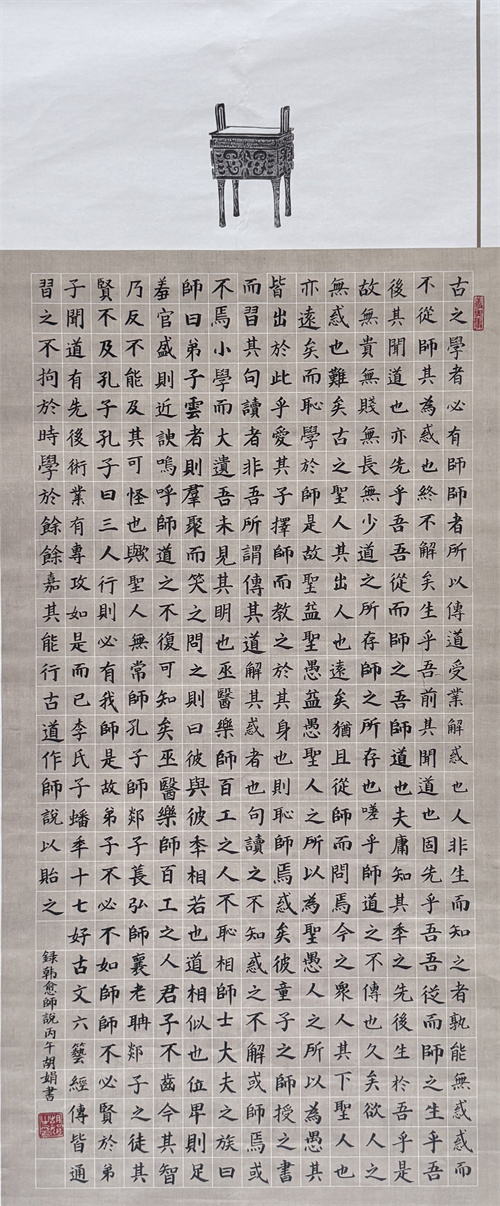 古之學者必有師師者所以傳道受業解惑也人非生而知之者孰能無惑惑而
不從師其為惑也終不解矣生乎吾前其聞道也固先乎吾吾從而師之生乎吾
後其聞道也亦先乎吾吾從而師之吾師道也夫庸知其秊之先後生於吾乎是
故無貴無賤無長無少道之所存師之所存也嗟乎師道之不傳也久矣欲人之
無惑也難矣古之聖人其出人也遠矣猶且從師而問焉今之衆人其下聖人也
亦遠矣而恥學於師是故聖益聖愚益愚聖人之所以為聖愚人之所以為愚其
皆出於此乎愛其子擇師而教之於其身也則恥師焉惑矣彼童子之師授之書
而習其句讀者非吾所謂傳其道解其惑者也句讀之不知惑之不解或師焉或
不焉小學而大遺吾未見其明也巫醫樂師百工之人不恥相師士大夫之族曰
師曰弟子雲者則羣聚而笑之問之則曰彼與彼秊相若也道相似也位卑則足
羞官盛則近諛嗚呼師道之不復可知矣巫醫樂師百工之人君子不齒今其智
乃反不能及其可怪也歟聖人無常師孔子師郯子萇弘師襄老聃郯子之徒其
賢不及孔子孔子曰三人行則必有我師是故弟子不必不如師師不必賢於弟
子聞道有先後術業有專攻如是而已李氏子蟠秊十七好古文六藝經傳皆通
習之不拘於時學於餘餘嘉其能行古道作師說以貽之
録韩愈師說丙午胡娟書